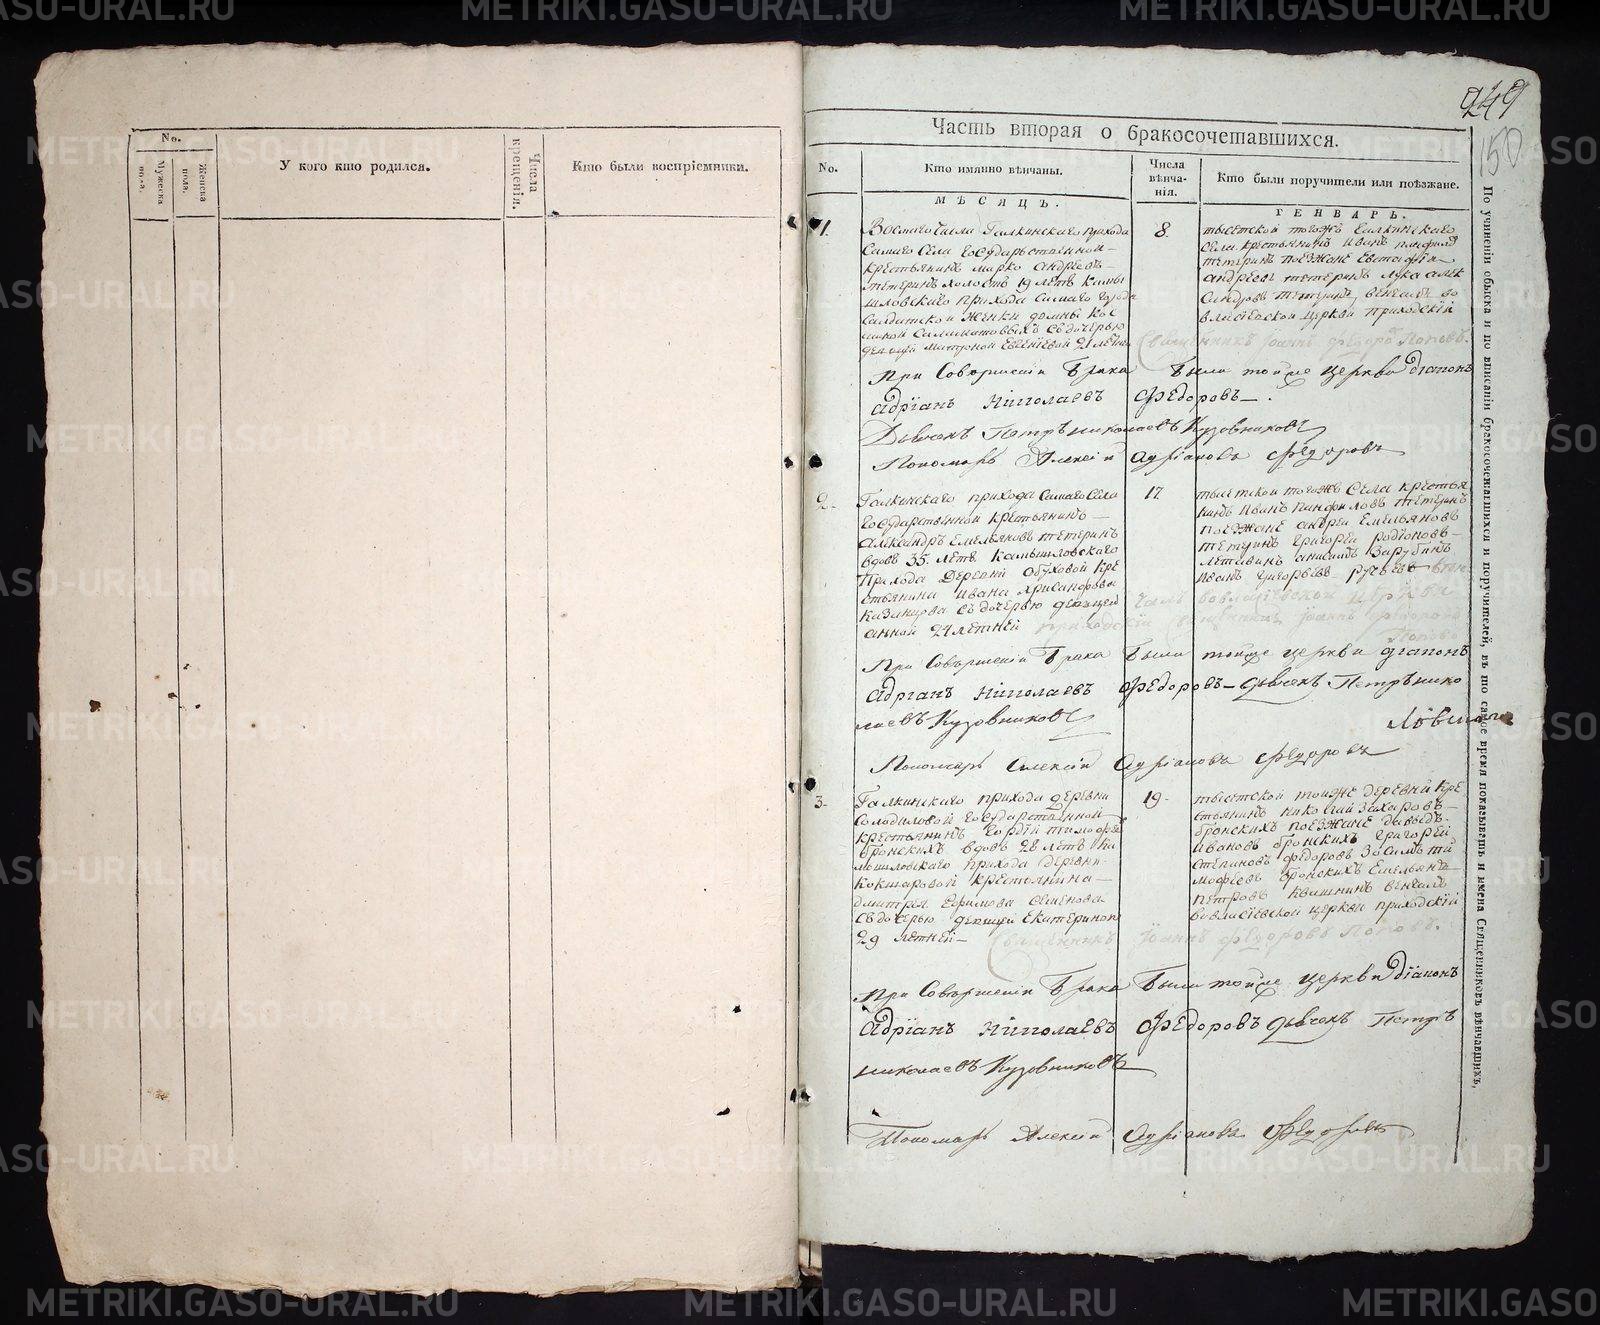 249
150
No.
Мужеска пола.
Женска пола.
У кого кто родился.
Числа крещенія.
Кто были воспріемники.
Часть вторая о бракосочетавшихся.
No.
Кто имянно вѣнчаны.
Числа вѣнчанія.
Кто были поручители или поѣзжане.
МѢСЯЦЪ.
ГЕНВАРЬ.
1.
Галкинскаго прихода
самаго села государственной
крестьянинъ марко андреевъ
тетеринъ холостъ 19 летъ камы
шловскаго прихода самаго города
солдатской женки домны
съ дочерью
девицей матроной евгеніевой 21 летъ
8.
тысяцкой тогожъ галкинскаго
села крестьянинъ иванъ панфилов
тетеринъ поезжане
андреевъ тетеринъ лука алек
сандровъ тетеринъ венчалъ во
власіевской церкви приходскій
Священникъ Іоаннъ Федоровъ Поповъ.
При Совершеніи Брака были тойже церкви діаконъ
Адріанъ Николаевъ Федоровъ.
Дьячекъ Петръ Николаевъ Кузовниковъ
Пономарь Алексій Адріановъ Федоровъ
2.
Галкинскаго прихода самаго села
государственной крестьянинъ
александръ емельяновъ тетеринъ
вдовъ 35 летъ камышловскаго
прихода деревни обуховой кре
стьянина ивана хрисанфова
казанцова съ дочерью девицей
анной 24 летней
17
тысяцкой тогожъ села крестья
нинъ иванъ панфиловъ тетеринъ
поезжане андрей емельяновъ
тетеринъ григорій родіоновъ
анисимъ зарубинъ
иванъ григорьевъ ручьевъ вен
чалъ во власіевской церкви
приходскій священникъ Іоаннъ федоровъ
Поповъ
При Совершеніи Брака были тойже церкви діаконъ
Адріанъ Николаевъ Федоровъ дьячекъ Петръ Нико
лаевъ Кузовниковъ
Пономарь Алексій Адріановъ Федоровъ
3.
Галкинскаго прихода деревни
солодиловой государственной
крестьянинъ гордѣй тимофеев
бронскихъ вдовъ 28 летъ ка
мышловскаго прихода деревни
кокшаровой крестьянина
дмитрея ефимова семенова
съ дочерью девицей екатериной
29 летней
19.
тысяцкой тояже деревни кре
стьянинъ николай захаровъ
бронскихъ поезжане давыдъ
ивановъ бронскихъ григорей
степановъ федоровъ зосимъ ти
мофеевъ бронскихъ емельянъ
петровъ квашнинъ венчалъ
во власіевской церкви приходскій
Священникъ Іоаннъ Федоровъ Поповъ.
При Совершеніи Брака были тойже церкви діаконъ
Адріанъ Николаевъ Федоровъ дьячекъ Петръ
Николаевъ Кузовниковъ
Пономарь Алексій Адріановъ Федоровъ
По учиненіи обыска и по вписаніи бракосочетавшихся и поручителей, въ то самое время показывать и имена Священниковъ вѣнчавшихъ,
METRIKI.GASO-URAL.RU